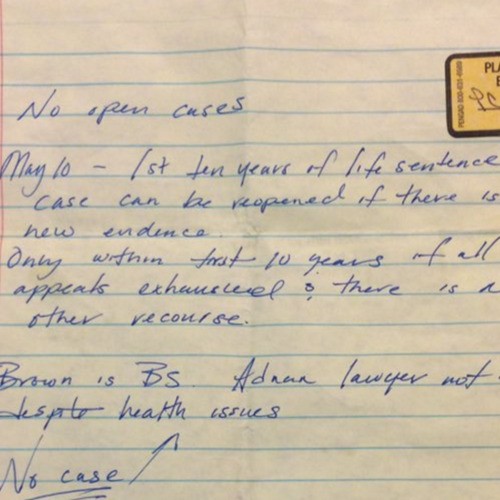 No open cases
May 10 - 1st ten years of life sentence
case can be reopened if there is
new evidence.
Only within first 10 years if all
appeals exhausted & there is n
other recourse.
Brown is BS. Adnan lawyer not
despite health issues
No case
PLA
PENGAD 800-631-6989